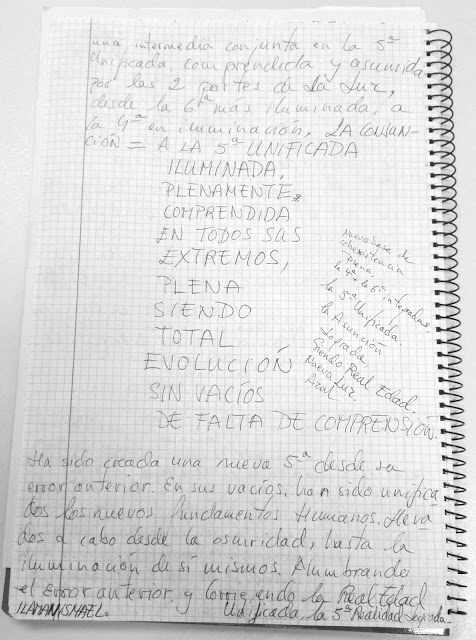 una intermedia conjunta en la 5ª
Unificada, comprendida y asumida
por las 2 partes de La Luz,
desde la 6ª más iluminada, a
la 4ª en iluminación, LA CONJUN-
CIÓN = A LA 5ª UNIFICADA
ILUMINADA,
PLENAMENTE
COMPRENDIDA
EN TODOS SUS
EXTREMOS,
PLENA
SIENDO
TOTAL
EVOLUCIÓN
SIN VACÍOS
DE FALTA DE COMPRENSIÓN.
Nueva Base de
coexistencia
Plena,
la 4ª e la 6ª integradas.
la 5ª Unificada.
la Asunción
Lograda,
Siendo Real Edad.
Nueva Luz.
Azul
Ha sido creada una nueva 5ª desde su
error anterior. En sus vacíos, han sido unifica-
dos los nuevos fundamentos Humanos. Lleva-
dos a cabo desde la oscuridad, hasta la
iluminación de sí mismos. Alumbrando
el error anterior, y Corrigiendo la Real Edad
Unificada, la 5ª Realidad Lograda